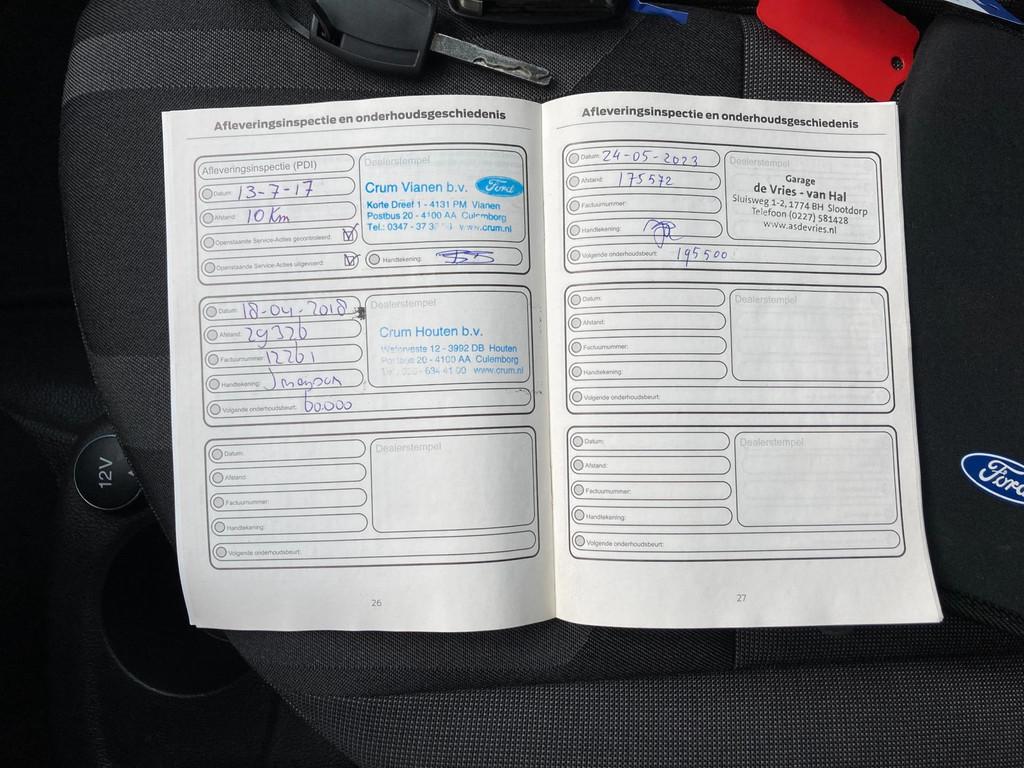 Afleveringsinspectie en onderhoudsgeschiedenis
Afleveringsinspectie (PDI)
Datum: 13-7-17
Afstand: 10 Km
Openstaande Service-Acties gecontroleerd:
Openstaande Service-Acties uitgevoerd:
Dealerstempel
Crum Vianen b.v. Ford
Korte Dreef 1 - 4131 PM Vianen
Postbus 20 - 4100 AA Culemborg
Tel.: 0347 - 37 3 www.crum.nl
Handtekening:
Datum: 18-04-2018
Afstand: 29326
Factuurnummer: 12261
Handtekening:
Volgende onderhoudsbeurt: 60.000
Dealerstempel
Crum Houten b.v.
Waterveste 12 - 3992 DB Houten
Postbus 20 - 4100 AA Culemborg
634 41 00 www.crum.nl
Datum:
Afstand:
Factuurnummer:
Handtekening:
Volgende onderhoudsbeurt:
Dealerstempel
26
Afleveringsinspectie en onderhoudsgeschiedenis
Datum: 24-05-2023
Afstand: 175572
Factuurnummer:
Handtekening:
Volgende onderhoudsbeurt: 195500
Dealerstempel
Garage
de Vries - van Hal
Sluisweg 1-2, 1774 BH Slootdorp
Telefoon (0227) 581428
www.asdevries.nl
Datum:
Afstand:
Factuurnummer:
Handtekening:
Volgende onderhoudsbeurt:
Dealerstempel
Datum:
Afstand:
Factuurnummer:
Handtekening:
Volgende onderhoudsbeurt:
Dealerstempel
27
12V
Ford